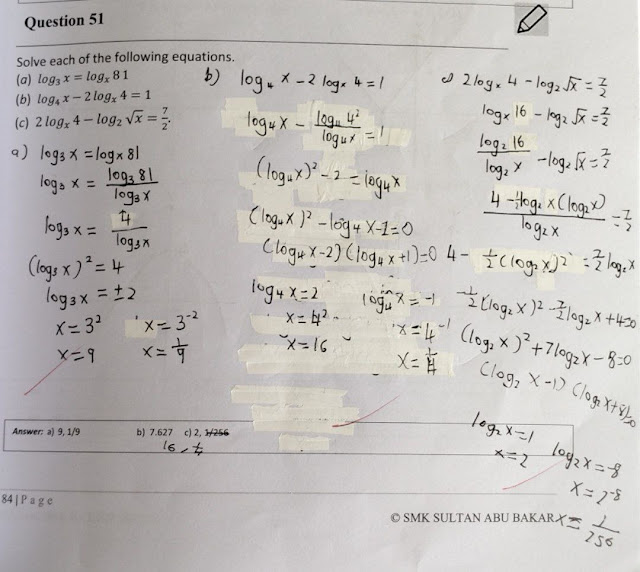 Question 51
Solve each of the following equations.
(a) log₃ x = logₓ 81
(b) log₄ x − 2 logₓ 4 = 1
(c) 2 logₓ 4 − log₂ √x = 7/2.
a) log₃ x = logₓ 81
log₃ x = log₃ 81 / log₃ x
log₃ x = 4 / log₃ x
(log₃ x)² = 4
log₃ x = ±2
x = 3² x = 3⁻²
x = 9 x = 1/9
b) log₄ x − 2 logₓ 4 = 1
log₄ x − log₄ 4² / log₄ x = 1
(log₄ x)² − 2 = log₄ x
(log₄ x)² − log₄ x − 2 = 0
(log₄ x − 2)(log₄ x + 1) = 0
log₄ x = 2 log₄ x = −1
x = 4² x = 4⁻¹
x = 16 x = 1/4
c) 2 logₓ 4 − log₂ √x = 7/2
logₓ 16 − log₂ √x = 7/2
log₂ 16 / log₂ x − log₂ √x = 7/2
4 − ½ log₂ x (log₂ x) / log₂ x = 7/2
4 − ½ (log₂ x)² = 7/2 log₂ x
−½ (log₂ x)² − 7/2 log₂ x + 4 = 0
(log₂ x)² + 7 log₂ x − 8 = 0
(log₂ x − 1) (log₂ x + 8) = 0
log₂ x = 1 log₂ x = −8
x = 2 x = 2⁻⁸
x = 1/256
Answer: a) 9, 1/9 b) 7.627 c) 2, 1/256
16, 1/4
84 | P a g e
© SMK SULTAN ABU BAKAR